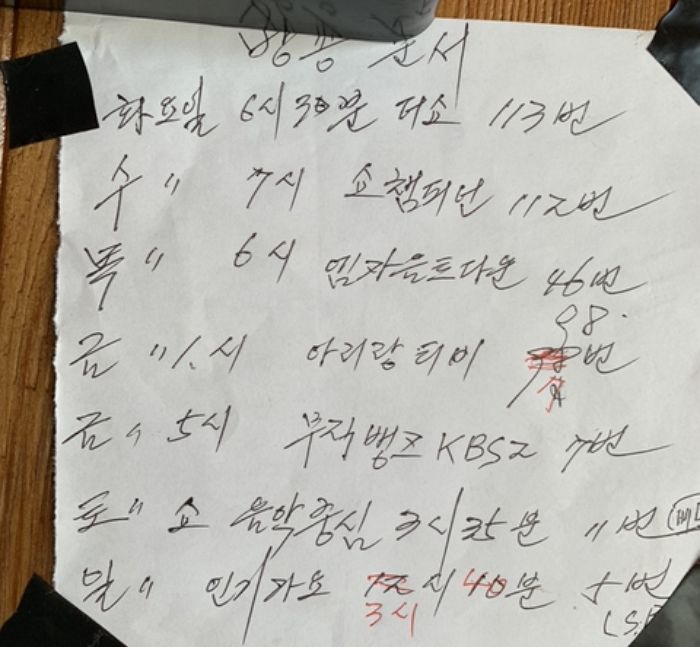 방송 순서
화요일 6시30분 더쇼 113번
수 " 7시 쇼챔피언 112번
목 " 6시 엠카운트다운 46번
98.
금 " 1.시 아리랑티비 번
금 " 5시 뮤직뱅크 KBS2 7번
토 " 쇼 음악중심 3시35분 11번
일 " 인기가요 시 40분 5번
3시